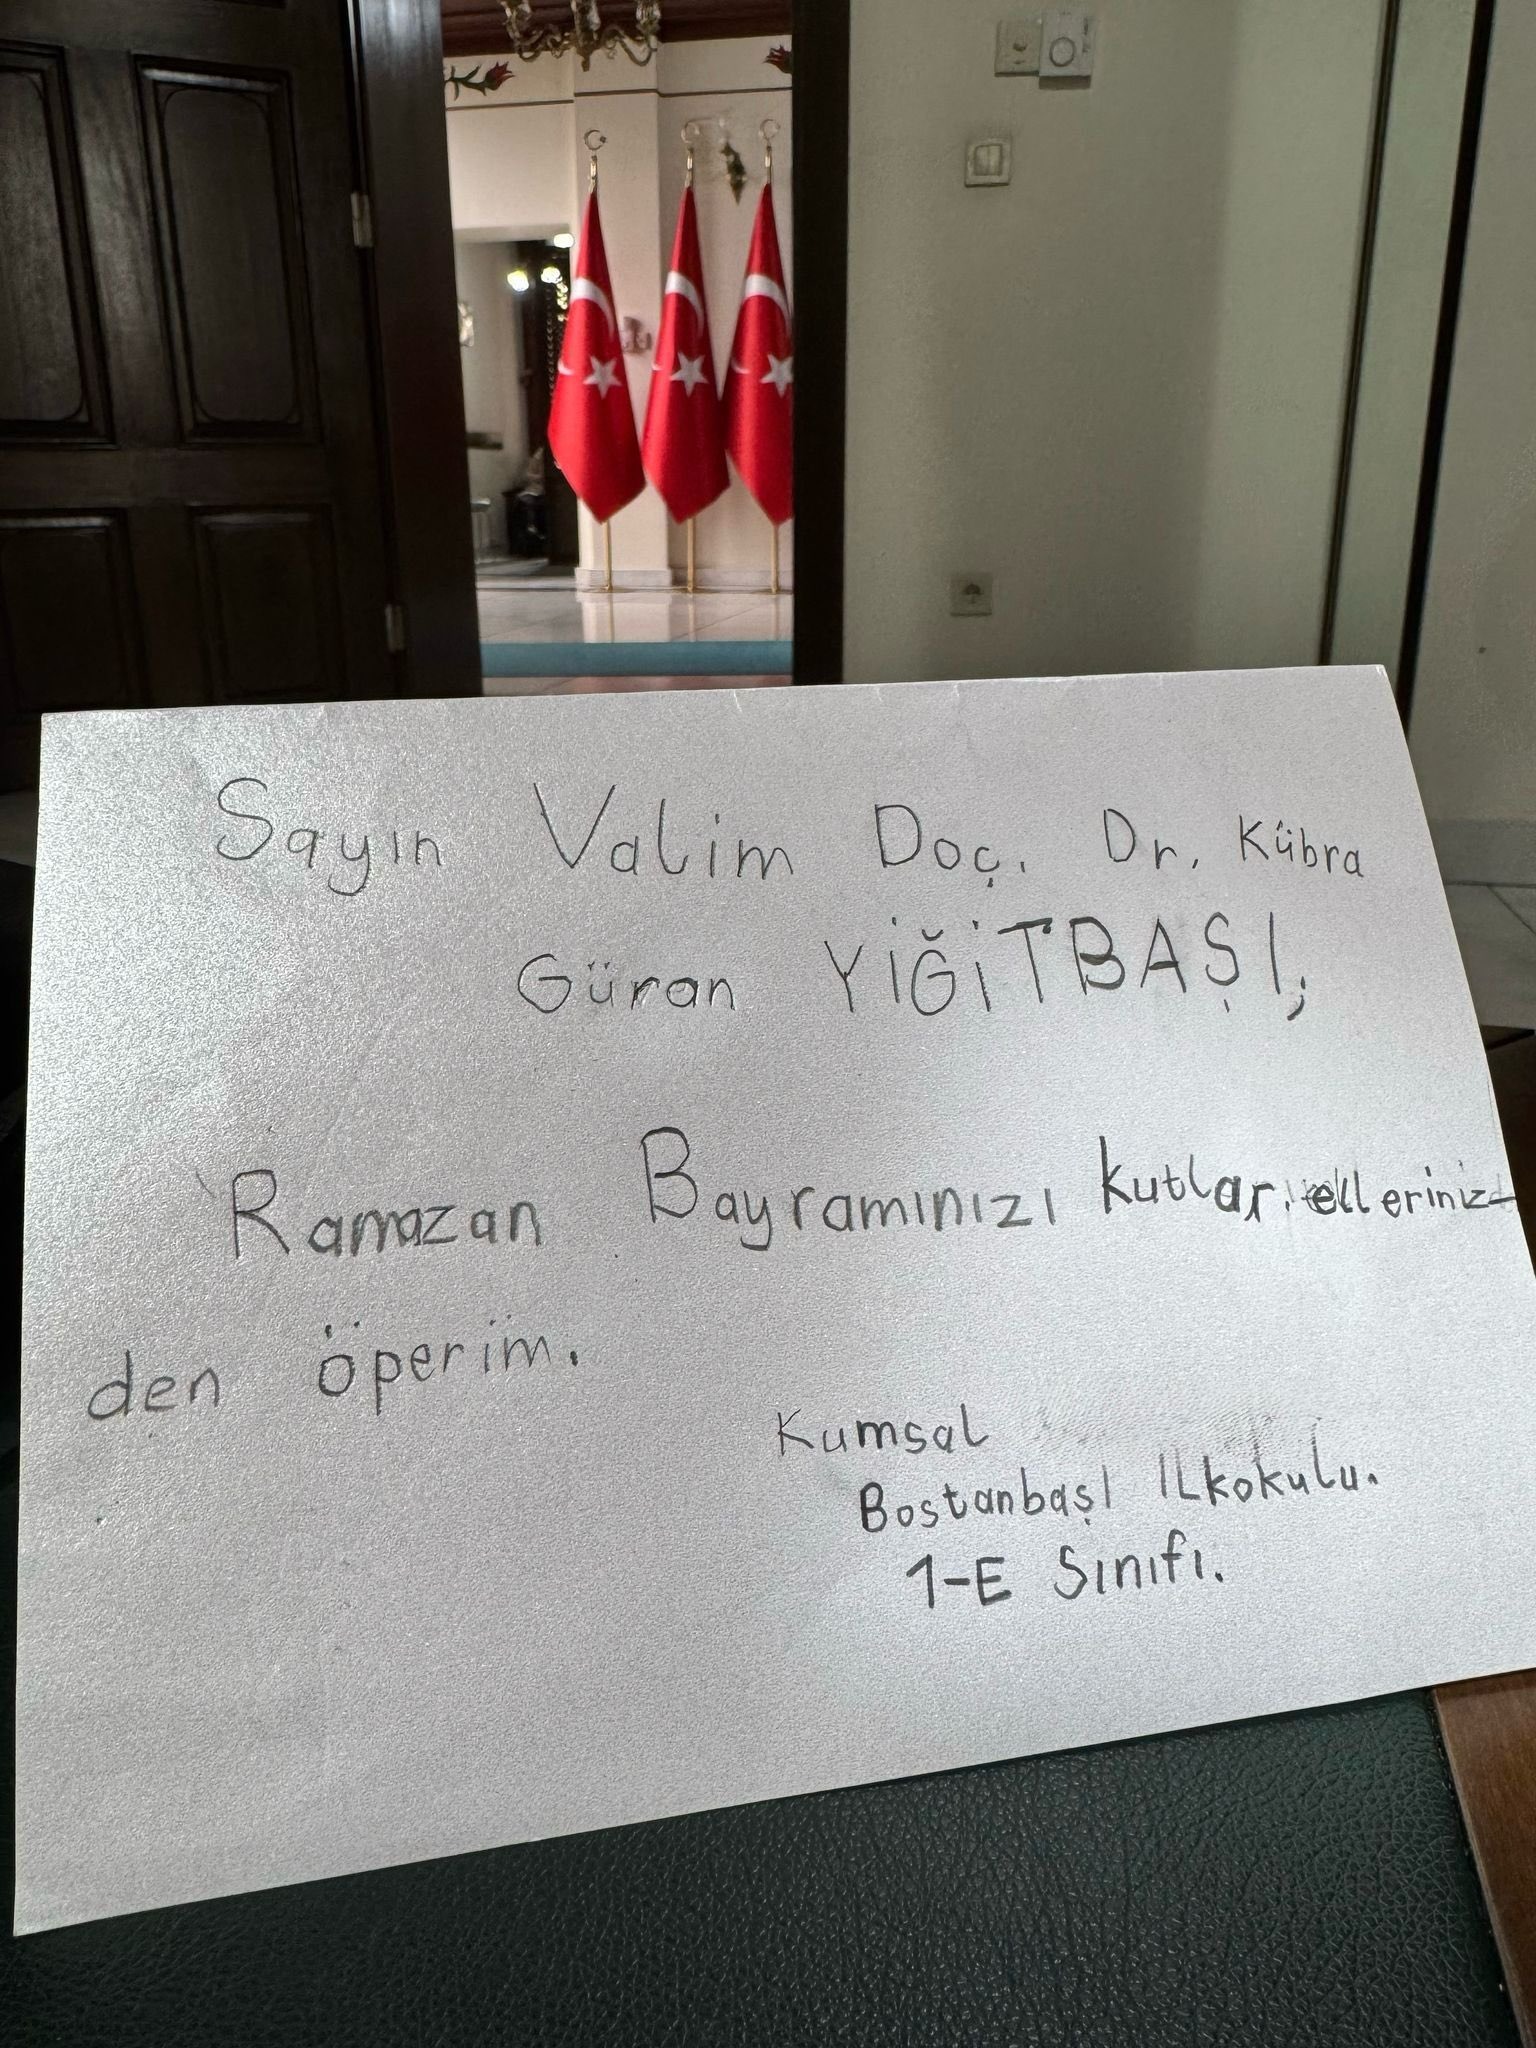 Sayın Valim Doç. Dr. Kübra
Güran YİĞİTBAŞI,
Ramazan Bayramınızı kutlar elleriniz-
den öperim.
Kumsal
Bostanbaşı ILkokulu.
1-E Sınıfı.